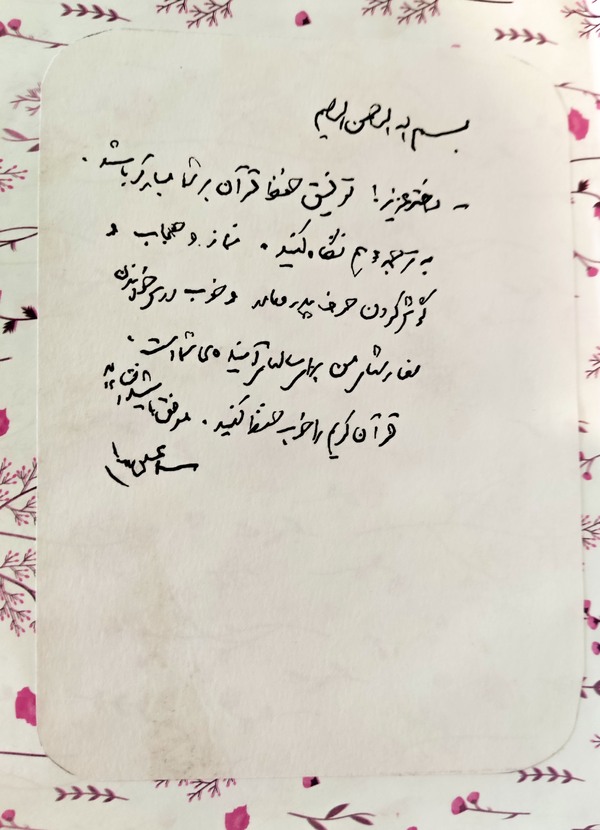 بسم الله الرحمن الرحیم
ـ دختر عزیز! توفیق حفظ قرآن بر شما مبارک باشد.
نگاه کنید. نماز و حجاب و
گوش کردن حرف پدر و مادر و خوب درس خواندن
سفارشهای من برای سالهای آینده‌ی شما است.
قرآن کریم را خوب حفظ کنید. موفق باشید ان‌شاءالله